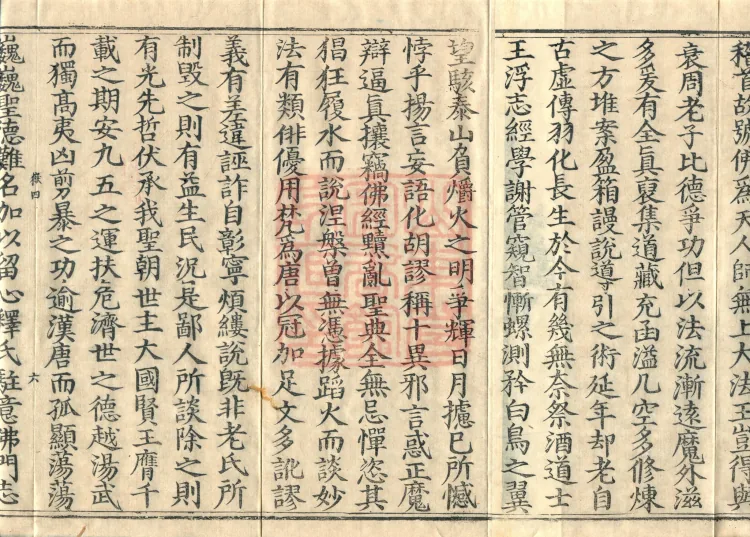 稽首故號佛爲天人師無上大法王豈得與
衰周老子比德爭功但以法流漸遠魔外滋
多爰有全眞裒集道藏充函溢几空多修煉
之方堆案盈箱謾說導引之術延年却老自
古虛傳羽化長生於今有幾無奈祭酒道士
王浮志經學謝管窺智慚螺測矜白鳥之翼
望駭泰山負爝火之明爭輝日月攄巳所憾
悖乎揚言妄語化胡謬稱十異邪言惑正魔
辯逼眞攘竊佛經黷亂聖典全無忌憚恣其
猖狂履水而說涅槃曾無憑據蹈火而談妙
法有類俳優用梵為唐以冠加足文多訛謬
義有差違誣詐自彰寧煩縷說旣非老氏所
制毀之則有益生民況是鄙人所談除之則
有光先哲伏承我聖朝世主大國賢王膺千
載之期安九五之運扶危濟世之德越湯武
而獨高夷凶剪暴之功逾漢唐而孤顯蕩蕩
四 六
巍巍聖德難名加以留心釋氏駐意佛門志